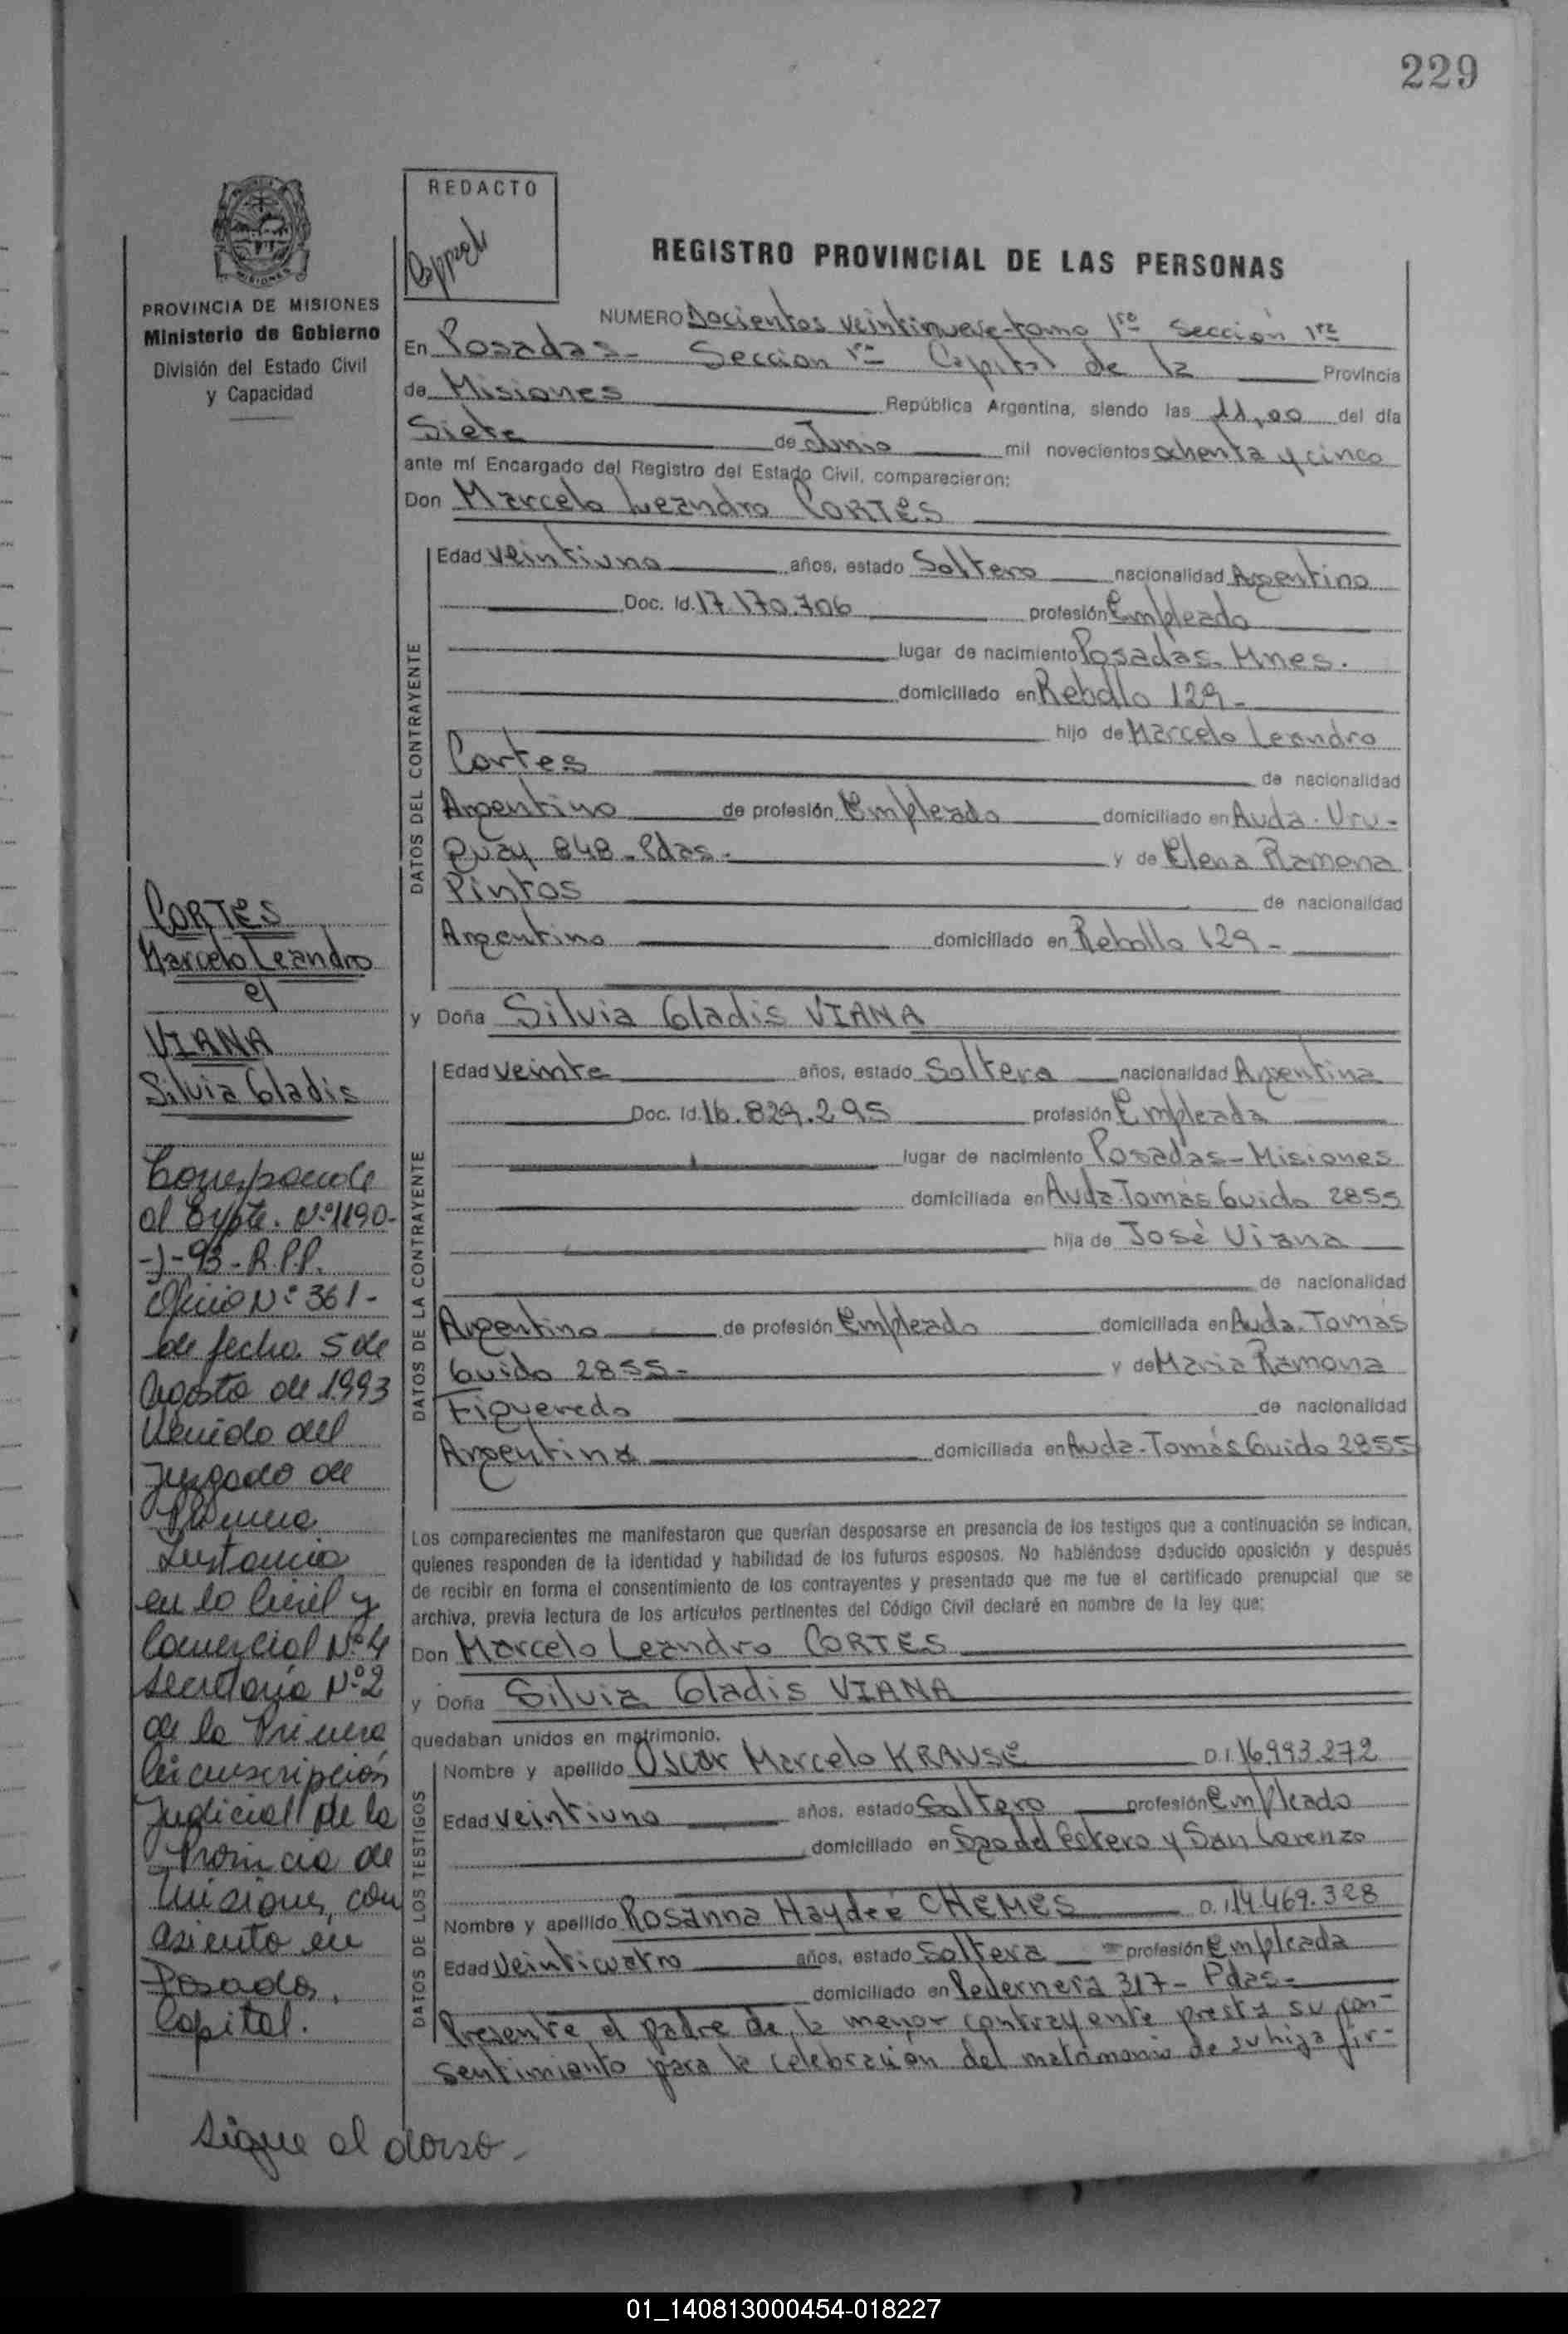 229
REDACTO
REGISTRO PROVINCIAL DE LAS PERSONAS
PROVINCIA DE MISIONES
Ministerio de Gobierno
División del Estado Civil
y Capacidad
NUMERO Docientos veintinueve-tomo 1ro Sección 1ra
En Posadas- Seccion 1ra Capital de la Provincia
de Misiones República Argentina, siendo las 11,00 del día
Siete de Junio mil novecientos ochenta y cinco
ante mí Encargado del Registro del Estado Civil, comparecieron:
Don Marcelo Leandro CORTES
DATOS DEL CONTRAYENTE
Edad veintiuno años, estado Soltero nacionalidad Argentino
Doc. Id. 17.170.706 profesión Empleado
lugar de nacimiento Posadas. Mnes.
domiciliado en Rebollo 129-
hijo de Marcelo Leandro
Cortes de nacionalidad
Argentino de profesión Empleado domiciliado en Avda. Uru-
guay 848-Pdas- y de Elena Ramona
Pintos de nacionalidad
Argentino domiciliado en Rebollo 129-
y Doña Silvia Gladis VIANA
DATOS DE LA CONTRAYENTE
Edad veinte años, estado Soltera nacionalidad Argentina
Doc. Id. 16.829.295 profesión Empleada
lugar de nacimiento Posadas-Misiones
domiciliada en Avda Tomás Guido 2855
hija de José Viana
de nacionalidad
Argentino de profesión Empleado domiciliada en Avda. Tomás
Guido 2855- y de Maria Ramona
Figueredo de nacionalidad
Argentina domiciliada en Avda. Tomás Guido 2855
Los comparecientes me manifestaron que querían desposarse en presencia de los testigos que a continuación se indican,
quienes responden de la identidad y habilidad de los futuros esposos. No habiéndose deducido oposición y después
de recibir en forma el consentimiento de los contrayentes y presentado que me fue el certificado prenupcial que se
archiva, previa lectura de los artículos pertinentes del Código Civil declaré en nombre de la ley que:
Don Marcelo Leandro CORTES
y Doña Silvia Gladis VIANA
quedaban unidos en matrimonio.
DATOS DE LOS TESTIGOS
Nombre y apellido Oscar Marcelo KRAUSE D.I. 16.993.272
Edad veintiuno años, estado Soltero profesión Empleado
domiciliado en Sgo del Estero y San Lorenzo
Nombre y apellido Rosanna Haydeé CHEMES D.I. 14.469.328
Edad veinticuatro años, estado Soltera profesión Empleada
domiciliado en Pedernera 317- Pdas-
Presente el padre de la menor contrayente presta su con-
sentimiento para la celebración del matrimonio de su hija fir-
CORTES
Marcelo Leandro
c/
VIANA
Silvia Gladis
Corresponde
al Expte. Nº1190-
-J-93-R.P.P.
Oficio Nº 361-
de fecha 5 de
agosto de 1993
Venido del
Juzgado de
Primera
Instancia
en lo Civil y
Comercial Nº4
Secretaría Nº2
de la Primera
Circunscripción
Judicial de la
Provincia de
Misiones, con
asiento en
Posadas,
Capital.
Sigue al dorso-
01_140813000454-018227